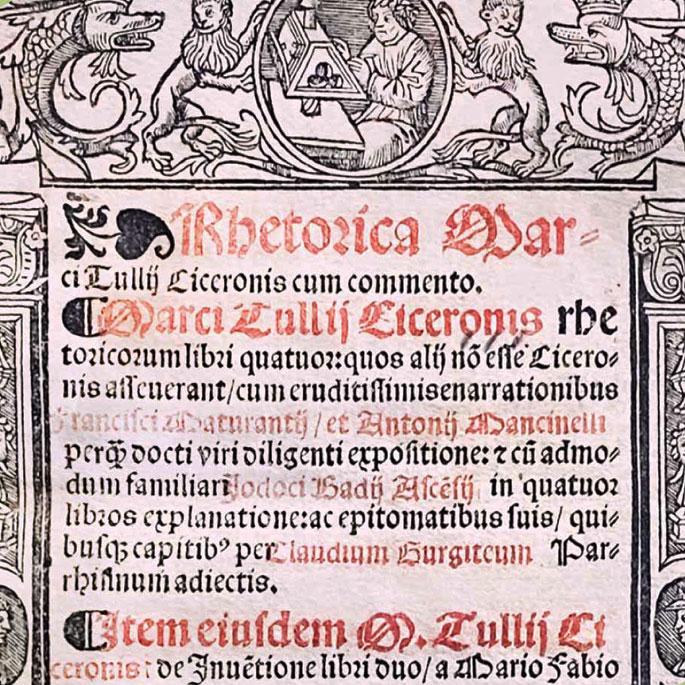 Rhetorica Mar-
ci Tullij Ciceronis cum commento.
Marci Tullij Ciceronis rhe
toricorum libri quatuor: quos alij nõ eſſe Cicero-
nis aſſeuerant/ cum eruditiſſimis enarrationibus
Franciſci Maturantij/ et Antonij Mancinelli
perq̃ docti viri diligenti expoſitione: ⁊ cũ admo-
dum familiari Jodoci Badij Aſcẽſij in quatuor
libros explanatione: ac epitomatibus ſuis/ qui-
buſqꝫ capitibꝰ per Claudium Gurgiteum Par-
rhiſinum adiectis.
Item eiuſdem M. Tullij Ci
ceronis: de Inuẽtione libri duo/ a Mario Fabio